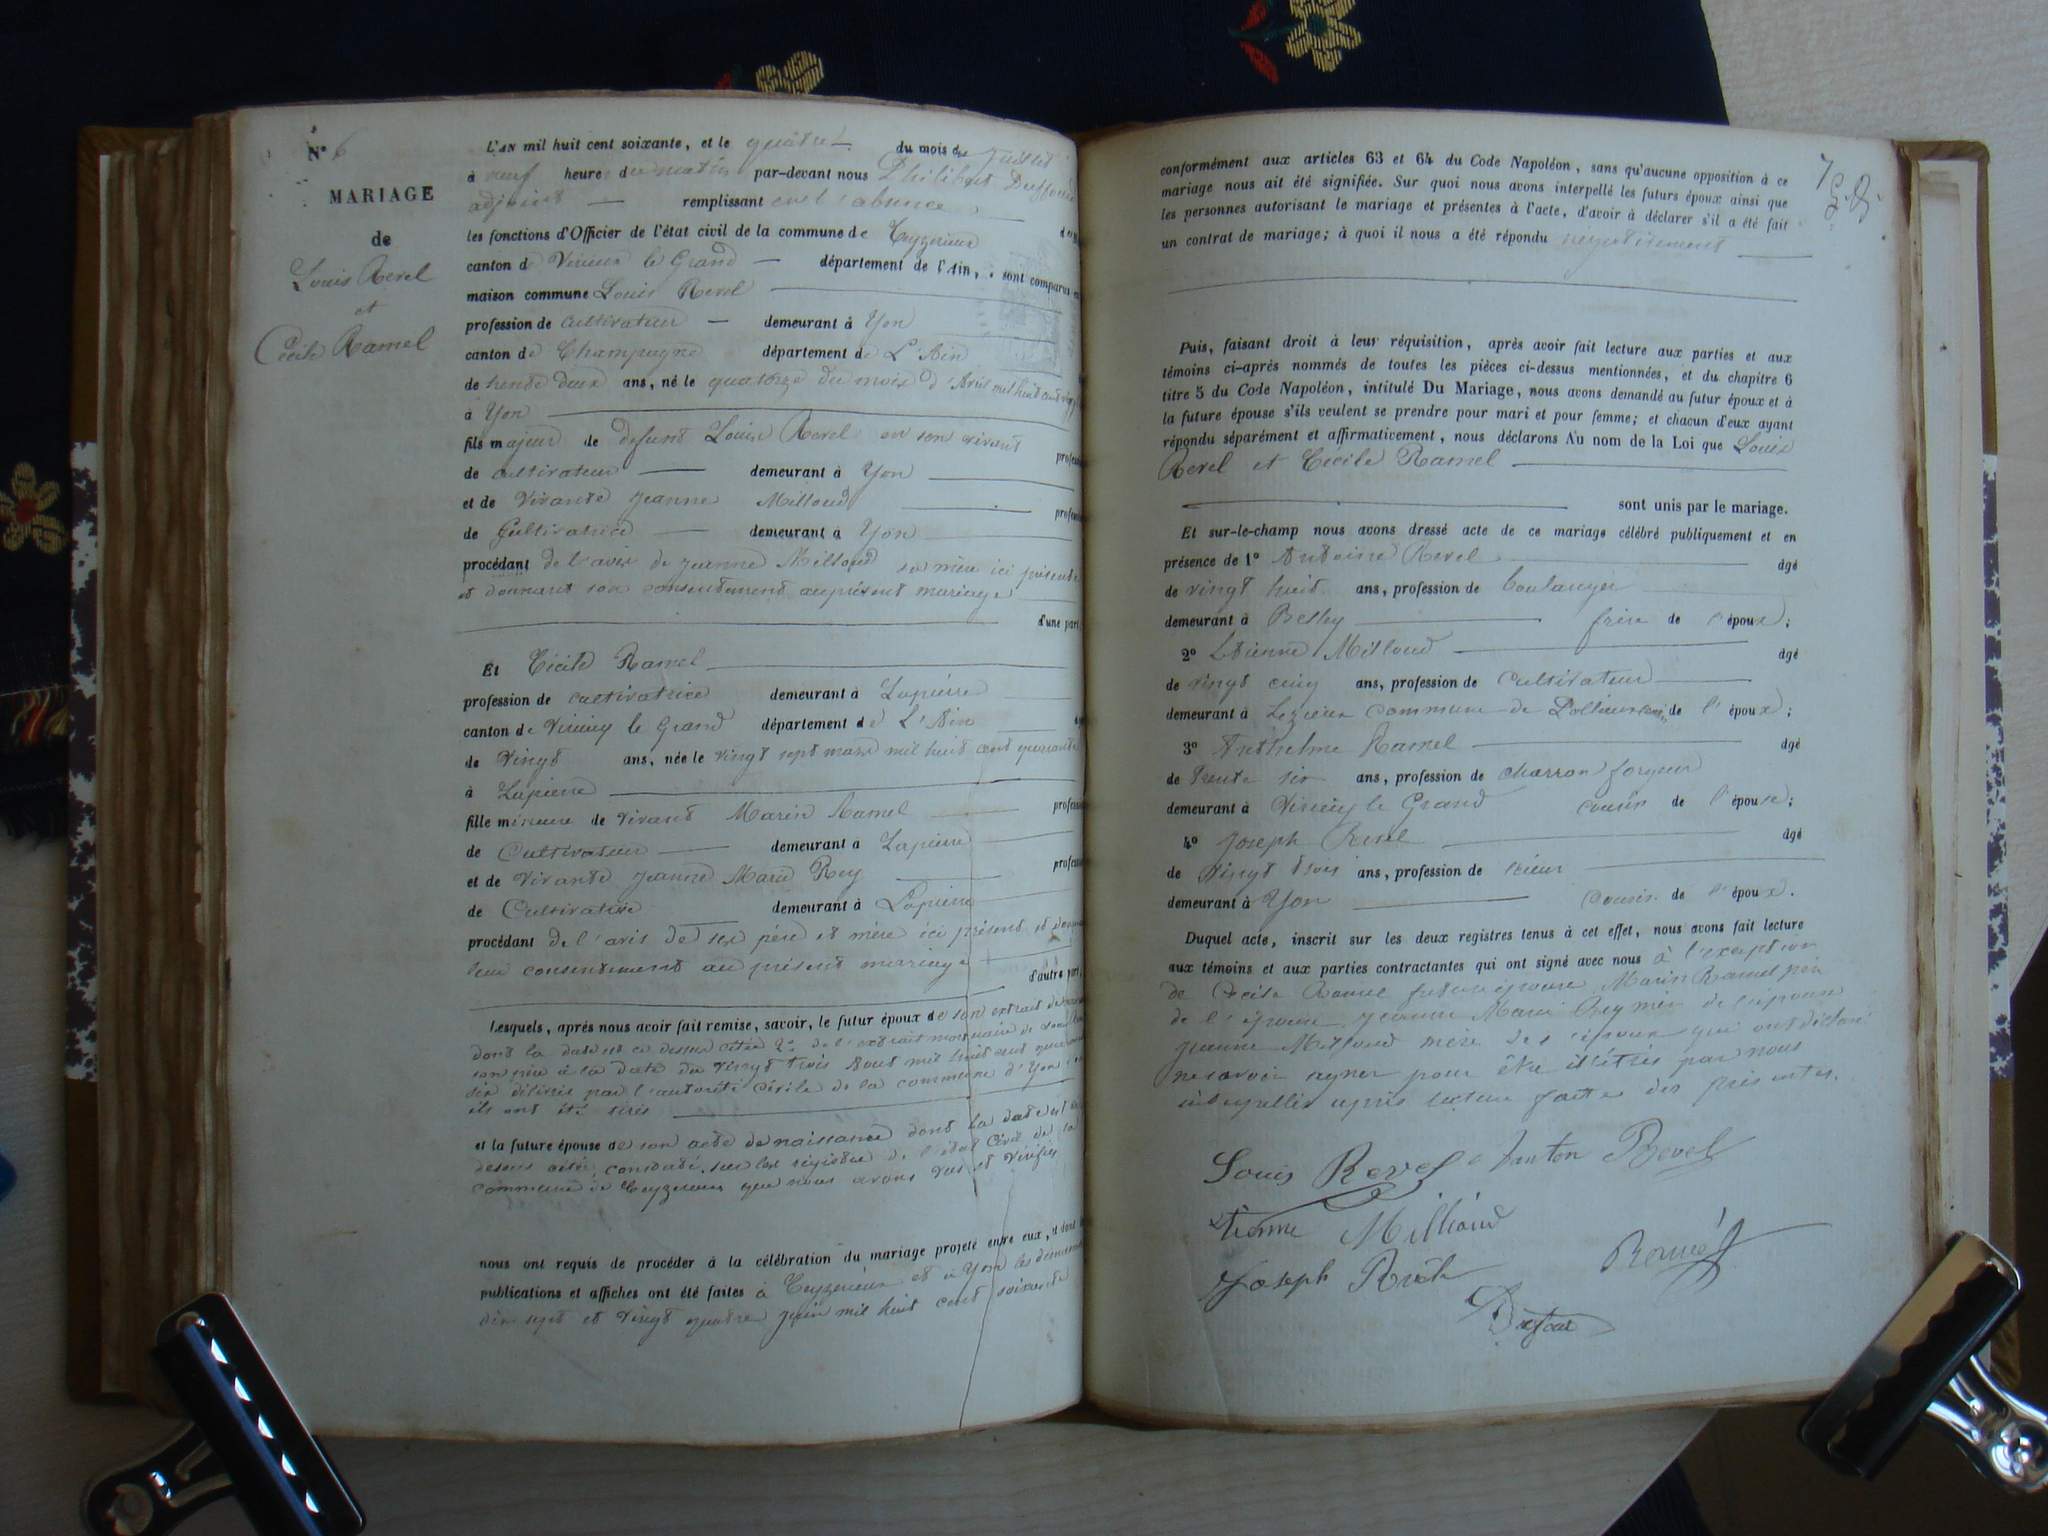 N° 6
MARIAGE
de
Louis Revel
et
Cécile Ramel
L'AN mil huit cent soixante, et le quatre du mois de Juillet
à neuf heures du matin par-devant nous Philibert
adjoint remplissant en l'absence
les fonctions d'Officier de l'état civil de la commune de Ceyzerieux
canton de Virieu le Grand département de l'Ain, sont comparus en
maison commune Louis Revel
profession de cultivateur demeurant à Yon
canton de Champagne département de L'Ain
de trente deux ans, né le quatorze du mois d'Avril mil huit cent
à Yon
fils majeur de defunt Louis Revel en son vivant
de cultivateur demeurant à Yon
et de Vivante Jeanne Milloud
de Cultivatrice demeurant à Yon
procédant de l'avis de Jeanne Milloud sa mère ici présente
et donnant son consentement au présent mariage
d'une part,
Et Cécile Ramel
profession de cultivatrice demeurant à Lapierre
canton de Virieu le Grand département de L'Ain
de Vingt ans, née le vingt sept mars mil huit cent quarante
à Lapierre
fille mineure de vivant Marin Ramel
de Cultivateur demeurant à Lapierre
et de Vivante Jeanne Marie Rey
de Cultivatrice demeurant à Lapierre
procédant de l'avis de ses père et mère ici présent et
leur consentement au présent mariage
d'autre part,
Lesquels, après nous avoir fait remise, savoir, le futur époux de son extrait de
dont la date est ci dessus citée 2° de l'extrait mortuaire de
son père à la date du vingt trois Aout mil huit cent
six délivrés par l'autorité Civile de la commune d'Yon
ils ont été
et la future épouse de son acte de naissance dont la date est
dessus citée, sur les registre de l'état Civil de la
commune de Ceyzerieux que nous avons vus et vérifiés
nous ont requis de procéder à la célébration du mariage projeté entre eux, et dont les
publications et affiches ont été faites à Ceyzerieux et à Yon les dimanches
dix sept et vingt quatre juin mil huit cent soixante
conformément aux articles 63 et 64 du Code Napoléon, sans qu'aucune opposition à ce
mariage nous ait été signifiée. Sur quoi nous avons interpellé les futurs époux ainsi que
les personnes autorisant le mariage et présentes à l'acte, d'avoir à déclarer s'il a été fait
un contrat de mariage; à quoi il nous a été répondu négativement
Puis, faisant droit à leur réquisition, après avoir fait lecture aux parties et aux
témoins ci-après nommés de toutes les pièces ci-dessus mentionnées, et du chapitre 6
titre 5 du Code Napoléon, intitulé Du Mariage, nous avons demandé au futur époux et à
la future épouse s'ils veulent se prendre pour mari et pour femme; et chacun d'eux ayant
répondu séparément et affirmativement, nous déclarons Au nom de la Loi que Louis
Revel et Cécile Ramel
sont unis par le mariage.
Et sur-le-champ nous avons dressé acte de ce mariage célébré publiquement et en
présence de 1° Antoine Revel âgé
de vingt huit ans, profession de boulanger
demeurant à Belley frère de l'époux;
2° Etienne Milloud âgé
de vingt cinq ans, profession de Cultivateur
demeurant à commune de de l'époux;
3° Anthelme Ramel âgé
de Trente six ans, profession de charron forgeur
demeurant à Virieu le Grand cousin de l'épouse;
4° Joseph Revel âgé
de Vingt trois ans, profession de scieur
demeurant à Yon cousin de l'époux.
Duquel acte, inscrit sur les deux registres tenus à cet effet, nous avons fait lecture
aux témoins et aux parties contractantes qui ont signé avec nous à l'exception
de Cécile Ramel future épouse Marin Ramel père
de l'épouse Jeanne Marie Rey mère de l'épouse
Jeanne Milloud mère de l'époux qui ont déclaré
ne savoir signer pour être illétrés par nous
interpellés après lecture faite des présentes.
Louis Revel Anton Revel
Etienne Milloud
Joseph Revel Ramel